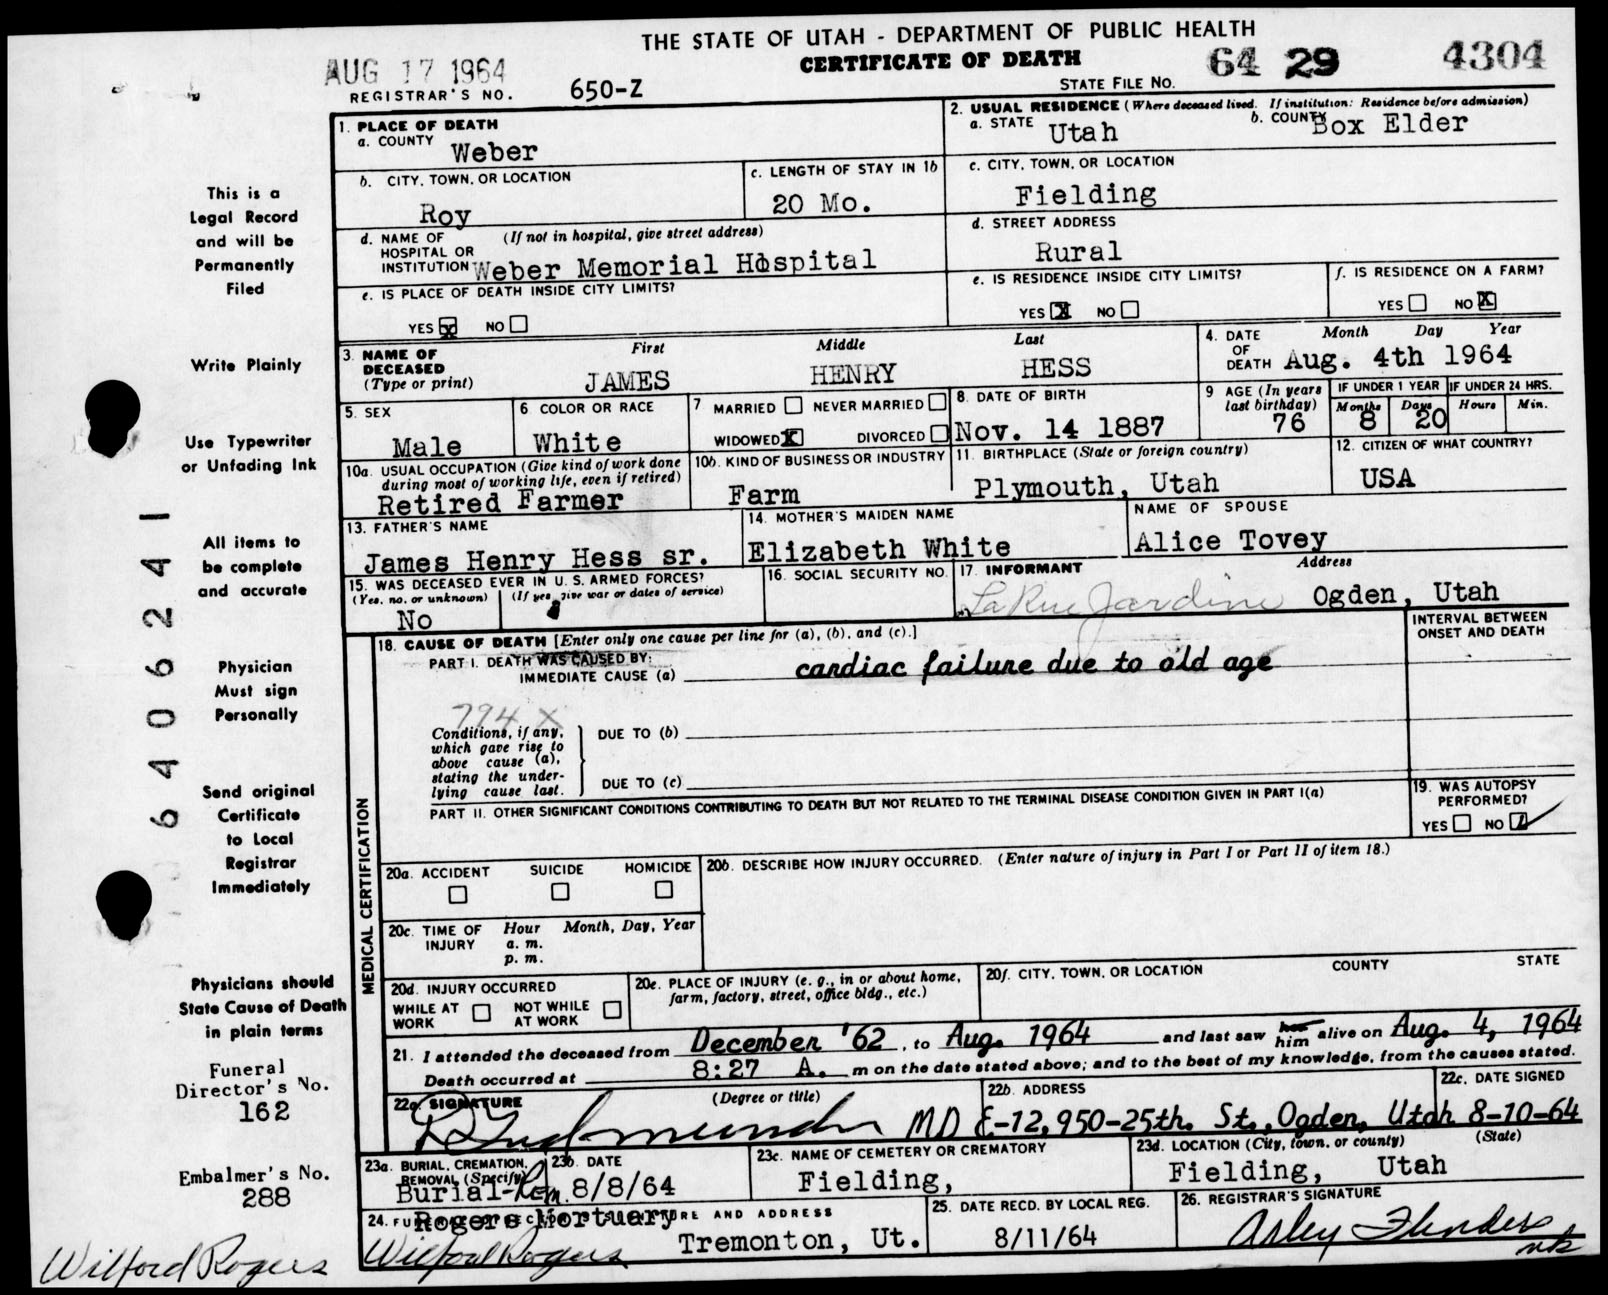 THE STATE OF UTAH - DEPARTMENT OF PUBLIC HEALTH
CERTIFICATE OF DEATH
AUG 17 1964
REGISTRAR'S NO. 650-Z
STATE FILE NO. 64 29 4304
1. PLACE OF DEATH
a. COUNTY Weber
b. CITY, TOWN, OR LOCATION Roy
c. LENGTH OF STAY IN 1b 20 Mo.
d. NAME OF HOSPITAL OR INSTITUTION (If not in hospital, give street address)
Weber Memorial Hospital
e. IS PLACE OF DEATH INSIDE CITY LIMITS?
YES X NO
2. USUAL RESIDENCE (Where deceased lived. If institution: Residence before admission)
a. STATE Utah b. COUNTY Box Elder
c. CITY, TOWN, OR LOCATION
Fielding
d. STREET ADDRESS
Rural
e. IS RESIDENCE INSIDE CITY LIMITS?
YES X NO
f. IS RESIDENCE ON A FARM?
YES NO X
3. NAME OF DECEASED (Type or print)
First Middle Last
JAMES HENRY HESS
4. DATE OF DEATH Month Day Year
Aug. 4th 1964
5. SEX
Male
6 COLOR OR RACE
White
7 MARRIED NEVER MARRIED
WIDOWED X DIVORCED
8. DATE OF BIRTH
Nov. 14 1887
9 AGE (In years last birthday)
76
IF UNDER 1 YEAR IF UNDER 24 HRS.
Months Days Hours Min.
8 20
10a. USUAL OCCUPATION (Give kind of work done during most of working life, even if retired)
Retired Farmer
10b. KIND OF BUSINESS OR INDUSTRY
Farm
11. BIRTHPLACE (State or foreign country)
Plymouth, Utah
12. CITIZEN OF WHAT COUNTRY?
USA
13. FATHER'S NAME
James Henry Hess sr.
14. MOTHER'S MAIDEN NAME
Elizabeth White
NAME OF SPOUSE
Alice Tovey
15. WAS DECEASED EVER IN U. S. ARMED FORCES?
(Yes, no, or unknown) (If yes, give war or dates of service)
No
16. SOCIAL SECURITY NO.
17. INFORMANT Address
LaRue Jardine Ogden, Utah
MEDICAL CERTIFICATION
18. CAUSE OF DEATH [Enter only one cause per line for (a), (b), and (c).]
INTERVAL BETWEEN ONSET AND DEATH
PART I. DEATH WAS CAUSED BY:
IMMEDIATE CAUSE (a) cardiac failure due to old age
794 X
Conditions, if any, which gave rise to above cause (a), stating the underlying cause last.
DUE TO (b)
DUE TO (c)
PART II. OTHER SIGNIFICANT CONDITIONS CONTRIBUTING TO DEATH BUT NOT RELATED TO THE TERMINAL DISEASE CONDITION GIVEN IN PART I(a)
19. WAS AUTOPSY PERFORMED?
YES NO
20a. ACCIDENT SUICIDE HOMICIDE
20b. DESCRIBE HOW INJURY OCCURRED. (Enter nature of injury in Part I or Part II of item 18.)
20c. TIME OF INJURY Hour Month, Day, Year
a. m.
p. m.
20d. INJURY OCCURRED
WHILE AT WORK NOT WHILE AT WORK
20e. PLACE OF INJURY (e. g., in or about home, farm, factory, street, office bldg., etc.)
20f. CITY, TOWN, OR LOCATION COUNTY STATE
21. I attended the deceased from December '62, to Aug. 1964 and last saw her him alive on Aug. 4, 1964
Death occurred at 8:27 A. m on the date stated above; and to the best of my knowledge, from the causes stated.
22a. SIGNATURE (Degree or title)
MD
22b. ADDRESS
E-12, 950-25th. St., Ogden, Utah
22c. DATE SIGNED
8-10-64
23a. BURIAL, CREMATION, REMOVAL (Specify)
Burial-Rem.
23b. DATE
8/8/64
23c. NAME OF CEMETERY OR CREMATORY
Fielding,
23d. LOCATION (City, town, or county) (State)
Fielding, Utah
24. FUNERAL DIRECTOR'S SIGNATURE AND ADDRESS
Rogers Mortuary
Wilford Rogers Tremonton, Ut.
25. DATE RECD. BY LOCAL REG.
8/11/64
26. REGISTRAR'S SIGNATURE
Arley Flinders
nk
This is a
Legal Record
and will be
Permanently
Filed
Write Plainly
Use Typewriter
or Unfading Ink
All items to
be complete
and accurate
Physician
Must sign
Personally
Send original
Certificate
to Local
Registrar
Immediately
Physicians should
State Cause of Death
in plain terms
Funeral
Director's No.
162
Embalmer's No.
288
Wilford Rogers
6406241